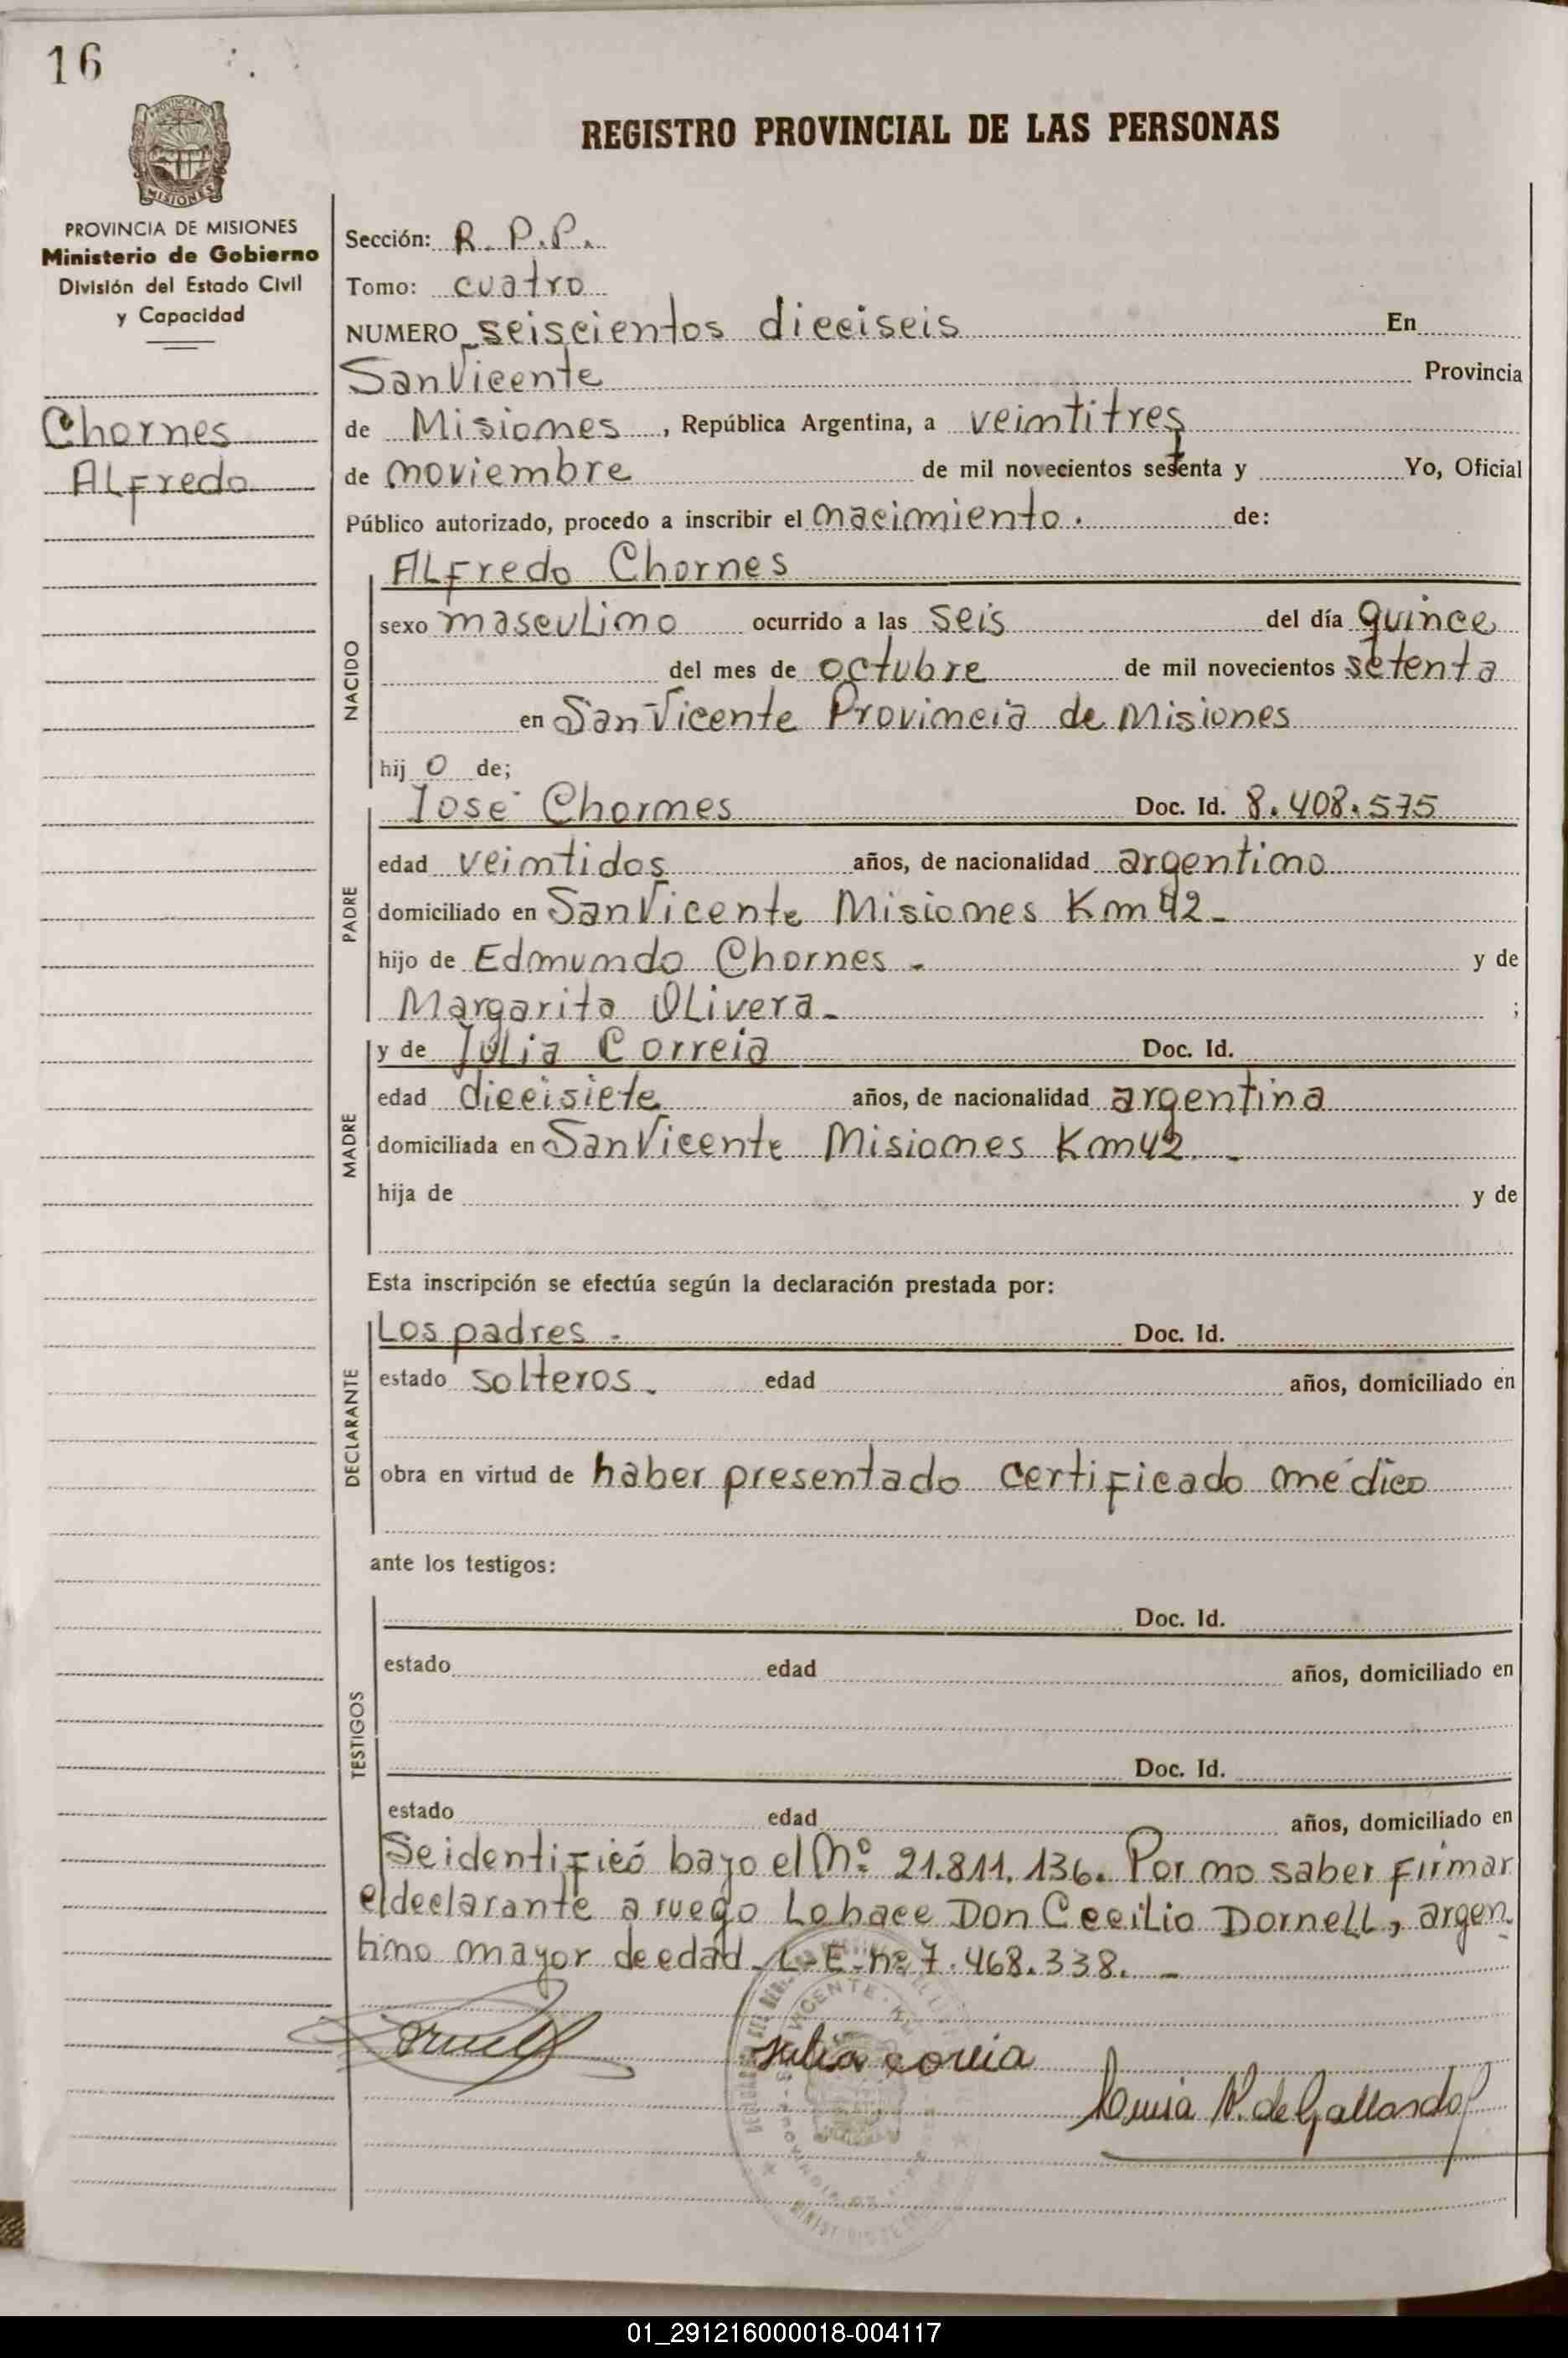 16
REGISTRO PROVINCIAL DE LAS PERSONAS
PROVINCIA DE MISIONES
Ministerio de Gobierno
División del Estado Civil
y Capacidad
Chornes
Alfredo
Sección: R. P. P.
Tomo: cuatro
NUMERO seiscientos dieciseis En
San Vicente Provincia
de Misiones, República Argentina, a veintitres
de noviembre de mil novecientos setenta y Yo, Oficial
Público autorizado, procedo a inscribir el nacimiento. de:
NACIDO
Alfredo Chornes
sexo masculino ocurrido a las seis del día quince
del mes de octubre de mil novecientos setenta
en San Vicente Provincia de Misiones
hij o de;
PADRE
José Chornes Doc. Id. 8.408.575
edad veintidos años, de nacionalidad argentino
domiciliado en San Vicente Misiones Km 42-
hijo de Edmundo Chornes - y de
Margarita Olivera- ;
MADRE
y de Julia Correia Doc. Id.
edad dieeisiete años, de nacionalidad argentina
domiciliada en San Vicente Misiones Km 42. -
hija de y de
Esta inscripción se efectúa según la declaración prestada por:
DECLARANTE
Los padres - Doc. Id.
estado solteros. edad años, domiciliado en
obra en virtud de haber presentado certificado médico
ante los testigos:
TESTIGOS
Doc. Id.
estado edad años, domiciliado en
Doc. Id.
estado edad años, domiciliado en
Se identificó bajo el Nº 21.811.136. Por no saber firmar
el declarante a ruego Lo hace Don Cecilio Dornell, argen-
tino mayor de edad - L-E-nº 7.468.338. -
Julia correia
de Gallardo
VICENTE
01_291216000018-004117